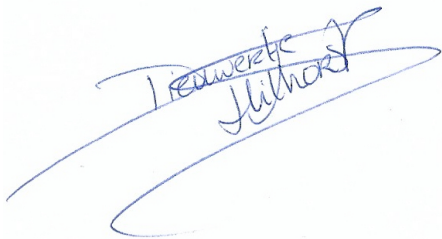 Dieuwertje
Hilhorst